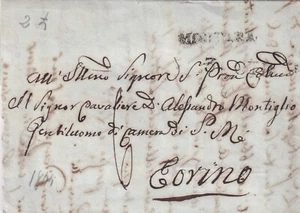 MORTARA
All' Illmo Signore Sig. Pron Colmo
Il Signor Cavaliere D. Alessandro Montiglio
Gentiluomo di Camera di S. M.
Torino